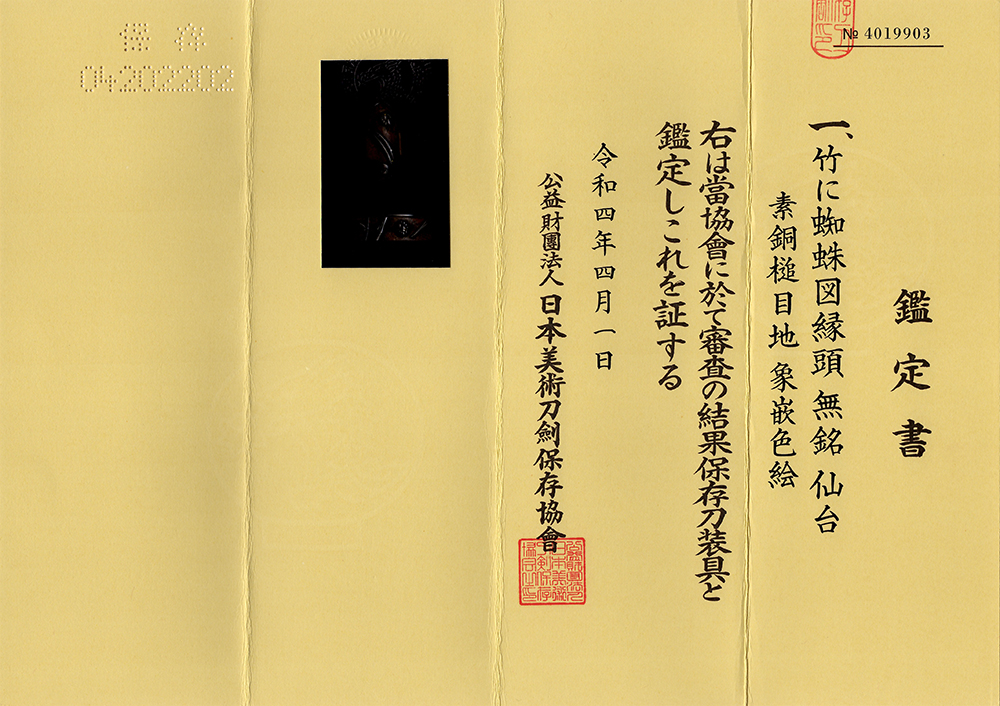 № 4019903
鑑定書
一、竹に蜘蛛図縁頭 無銘 仙台
素銅槌目地 象嵌色絵
右は當協會に於て審査の結果保存刀装具と
鑑定しこれを証する
令和四年四月一日
公益財團法人 日本美術刀劍保存協會
保存
04202202